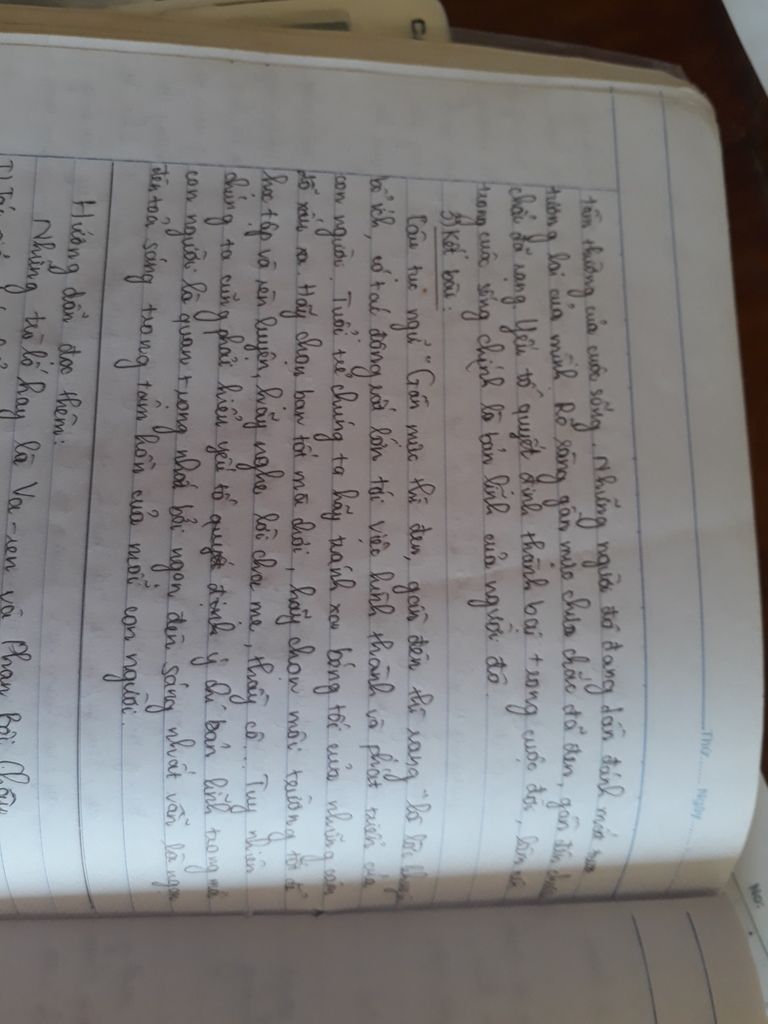 Thứ..... Ngày.....
No:
tầm thường của cuộc sống. Những người đó đang dần đánh mất
tương lai của mình. Rõ ràng gần mực chưa chắc đã đen, gần đèn chưa
chắc đã rạng. Yếu tố quyết định thành bại trong cuộc đời,
trong cuộc sống chính là bản lĩnh của người đó.
3) Kết bài:
Câu tục ngữ "Gần mực thì đen, gần đèn thì rạng" là lời khuyên
bổ ích, có tác động rất lớn tới việc hình thành và phát triển của
con người. Tuổi trẻ chúng ta hãy tránh xa bóng tối của những cám
dỗ xấu xa. Hãy chọn bạn tốt mà chơi, hãy chọn môi trường tốt để
học tập và rèn luyện, hãy nghe lời cha mẹ, thầy cô... Tuy nhiên
chúng ta cũng phải hiểu yếu tố quyết định ý chí bản lĩnh trong mỗi
con người là quan trọng nhất bởi ngọn đèn sáng nhất vẫn là ngọn
đèn toả sáng trong tâm hồn của mỗi con người.
Hướng dẫn đọc thêm:
Những trò lố hay là Va-ren và Phan Bội Châu